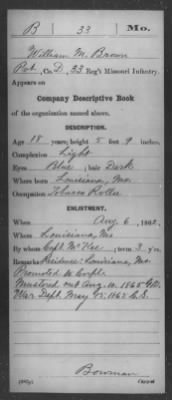 B 33 Mo.
William M. Brown
Pvt., Co. D, 33 Reg't Missouri Infantry.
Appears on
Company Descriptive Book
of the organization named above.
DESCRIPTION.
Age 18 years; height 5 feet 9 inches.
Complexion Light
Eyes Blue; hair Dark
Where born Louisiana, Mo.
Occupation Tobacco Roller
ENLISTMENT.
When Aug 6, 1862.
Where Louisiana, Mo
By whom Capt. McKee; term 3 y'rs.
Remarks: Residence: Louisiana, Mo.
Promoted to Corpl.
Mustered out Aug. 10. 1865
War Dept. May
Bowman
Copyist.